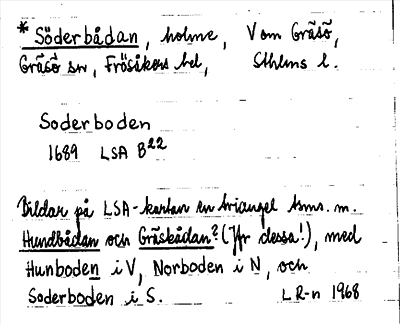 * Söderbådan, holme, V om Gräsö,
Gräsö sn, Frösåkers hd, Sthlms l.
Soderboden
1689 LSA B22
Bildar på LSA-kartan en triangel tsms. m.
Hundbådan och Gräsbådan? (Jfr dessa!), med
Hunboden i V, Norboden i N, och
Soderboden i S. LR-n 1968